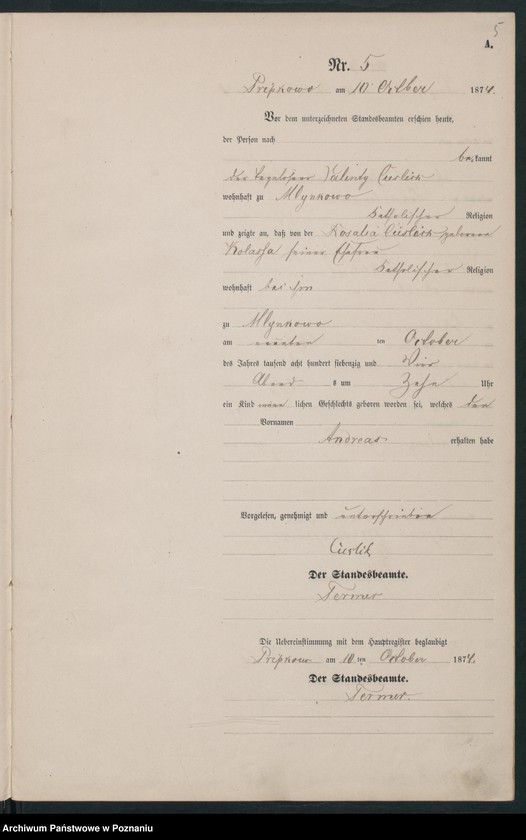 5
A.
Nr. 5
Pripkowo am 10 October 1874.
Vor dem unterzeichneten Standesbeamten erschien heute,
der Person nach
bekannt
der Valenty Cierlik
wohnhaft zu Mlynkowo
Katholischer Religion
und zeigte an, daß von der Rosalia geborene
seiner Ehefrau
Katholischer Religion
wohnhaft bei ihm
zu Mlynkowo
am neunten ten October
des Jahres tausend acht hundert siebenzig und vier
Abends um Zehn Uhr
ein Kind männlichen Geschlechts geboren worden sei, welches den
Vornamen
Andreas erhalten habe
Vorgelesen, genehmigt und unterschrieben
Cierlik
Der Standesbeamte.
Fermer
Die Uebereinstimmung mit dem Hauptregister beglaubigt
am 10 ten October 1874.
Der Standesbeamte.
Fermer.
Archiwum Państwowe w Poznaniu